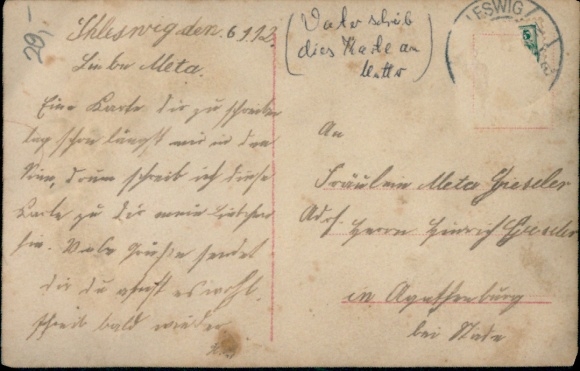 29,-
Schleswig den. 6 9.12.
Liebe Meta.
Eine Karte dir zu schreiben
lag schon längst mir in den
Sinn, drum schreib ich diese
Karte zu dir mein Liebchen
hin. Viele Grüße sendet
dir du weist es wohl.
schreib bald wieder
Vater schrieb
dies Karte an
Mutter
LESWIG
An
Fräulein Meta Gieseler
Adr. Herrn Heinrich Gieseler
in Agathenburg
bei Stade